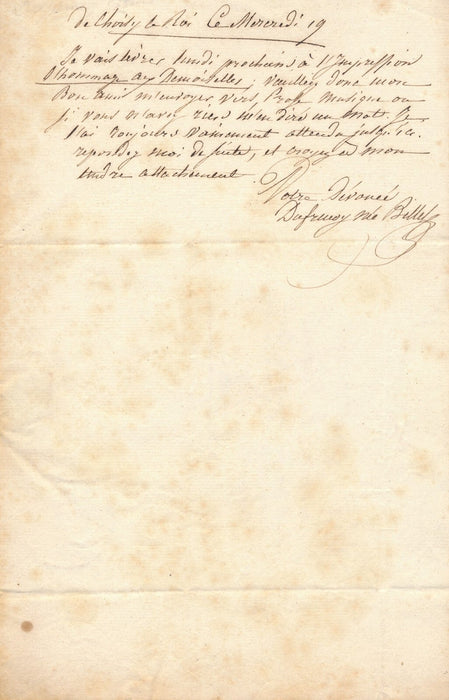 de Choisy le Roi Ce Mercredi 19
Je vais livrer lundi prochain à l'Impression
l'hommage aux Demoiselles; veuillez donc mon
Bon ami m'envoyer vers, Prose Musique ou
si vous n'avez rien m'en dire un mot. Je
l'ai toujours vainement attendu jusqu'ici.
repondez moi de suite, et croyez à mon
tendre attachement.
Votre Dévouée
Dufrenoy née Billet